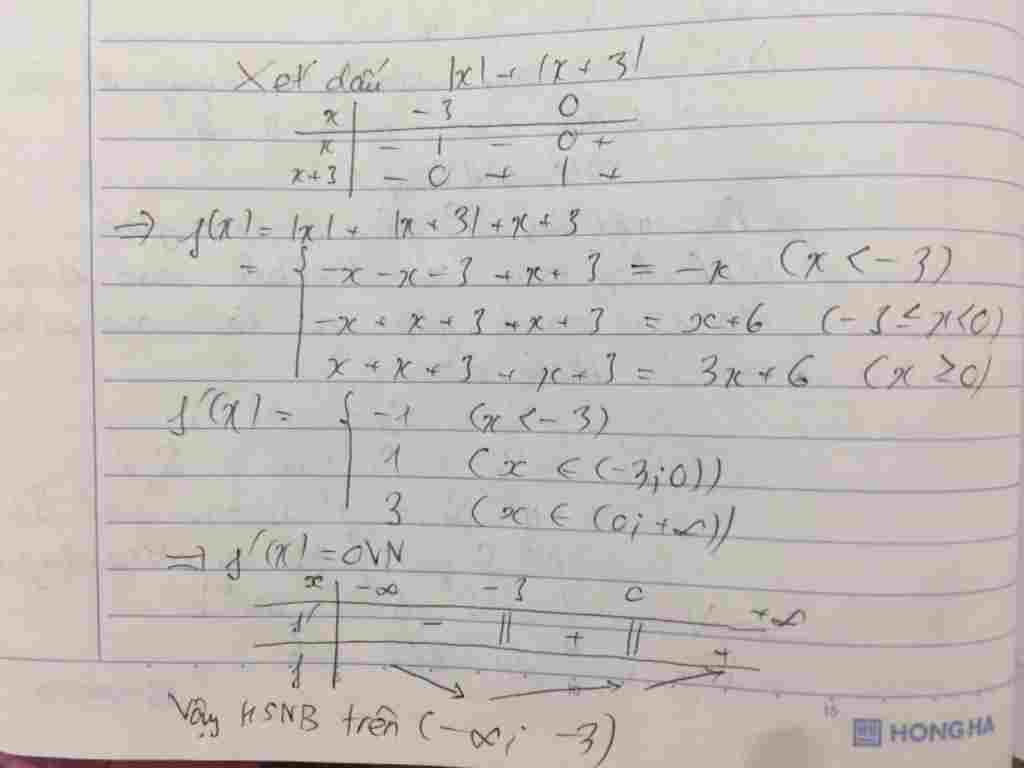 Xét dấu |x| + |x + 3|
x | -3 0
x | - | - 0 +
x+3 | - 0 + | +
=> f(x) = |x| + |x + 3| + x + 3
= { -x - x - 3 + x + 3 = -x (x < -3)
-x + x + 3 + x + 3 = x + 6 (-3 ≤ x < 0)
x + x + 3 + x + 3 = 3x + 6 (x ≥ 0)
f'(x) = { -1 (x < -3)
1 (x ∈ (-3; 0))
3 (x ∈ (0; +∞))
=> f'(x) = 0 VN
x | -∞ -3 0 +∞
f' | - || + || +
f | ↘ → ↗
Vậy HSNB trên (-∞; -3)
HONG HA